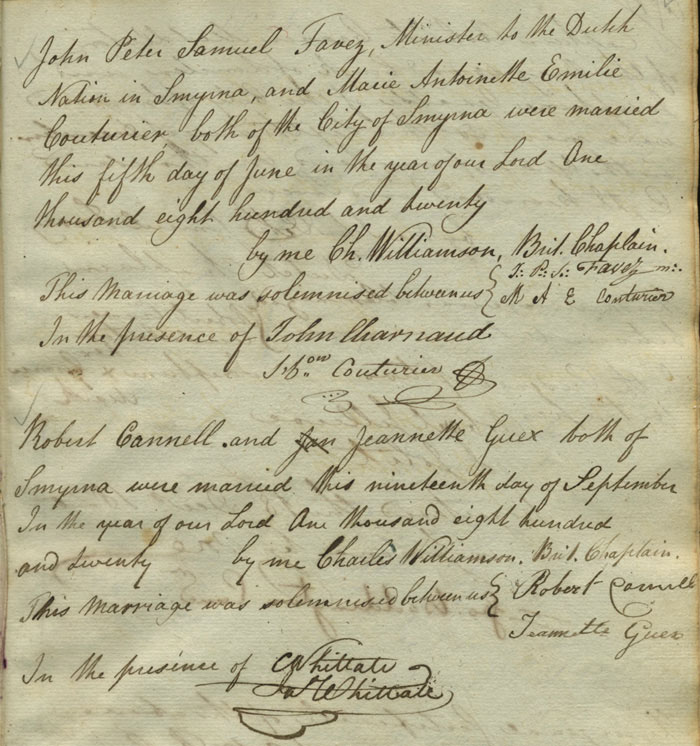 John Peter Samuel Favez, Minister to the Dutch
Nation in Smyrna, and Marie Antoinette Emilie
Couturier, both of the City of Smyrna were married
this fifth day of June in the year of our Lord One
thousand eight hundred and twenty
by me Ch. Williamson, Brit. Chaplain.
This Marriage was solemnised between us { J: P: S: Favez
M A E Couturier
In the presence of John Charnaud
Couturier
Robert Cannell and Jan Jeannette Guex both of
Smyrna were married this nineteenth day of September
In the year of our Lord One thousand eight hundred
and twenty by me Charles Williamson. Brit. Chaplain.
This Marriage was solemnised between us { Robert Cannell
Jeannette Guex
In the presence of C Whittall
Ja Whittall